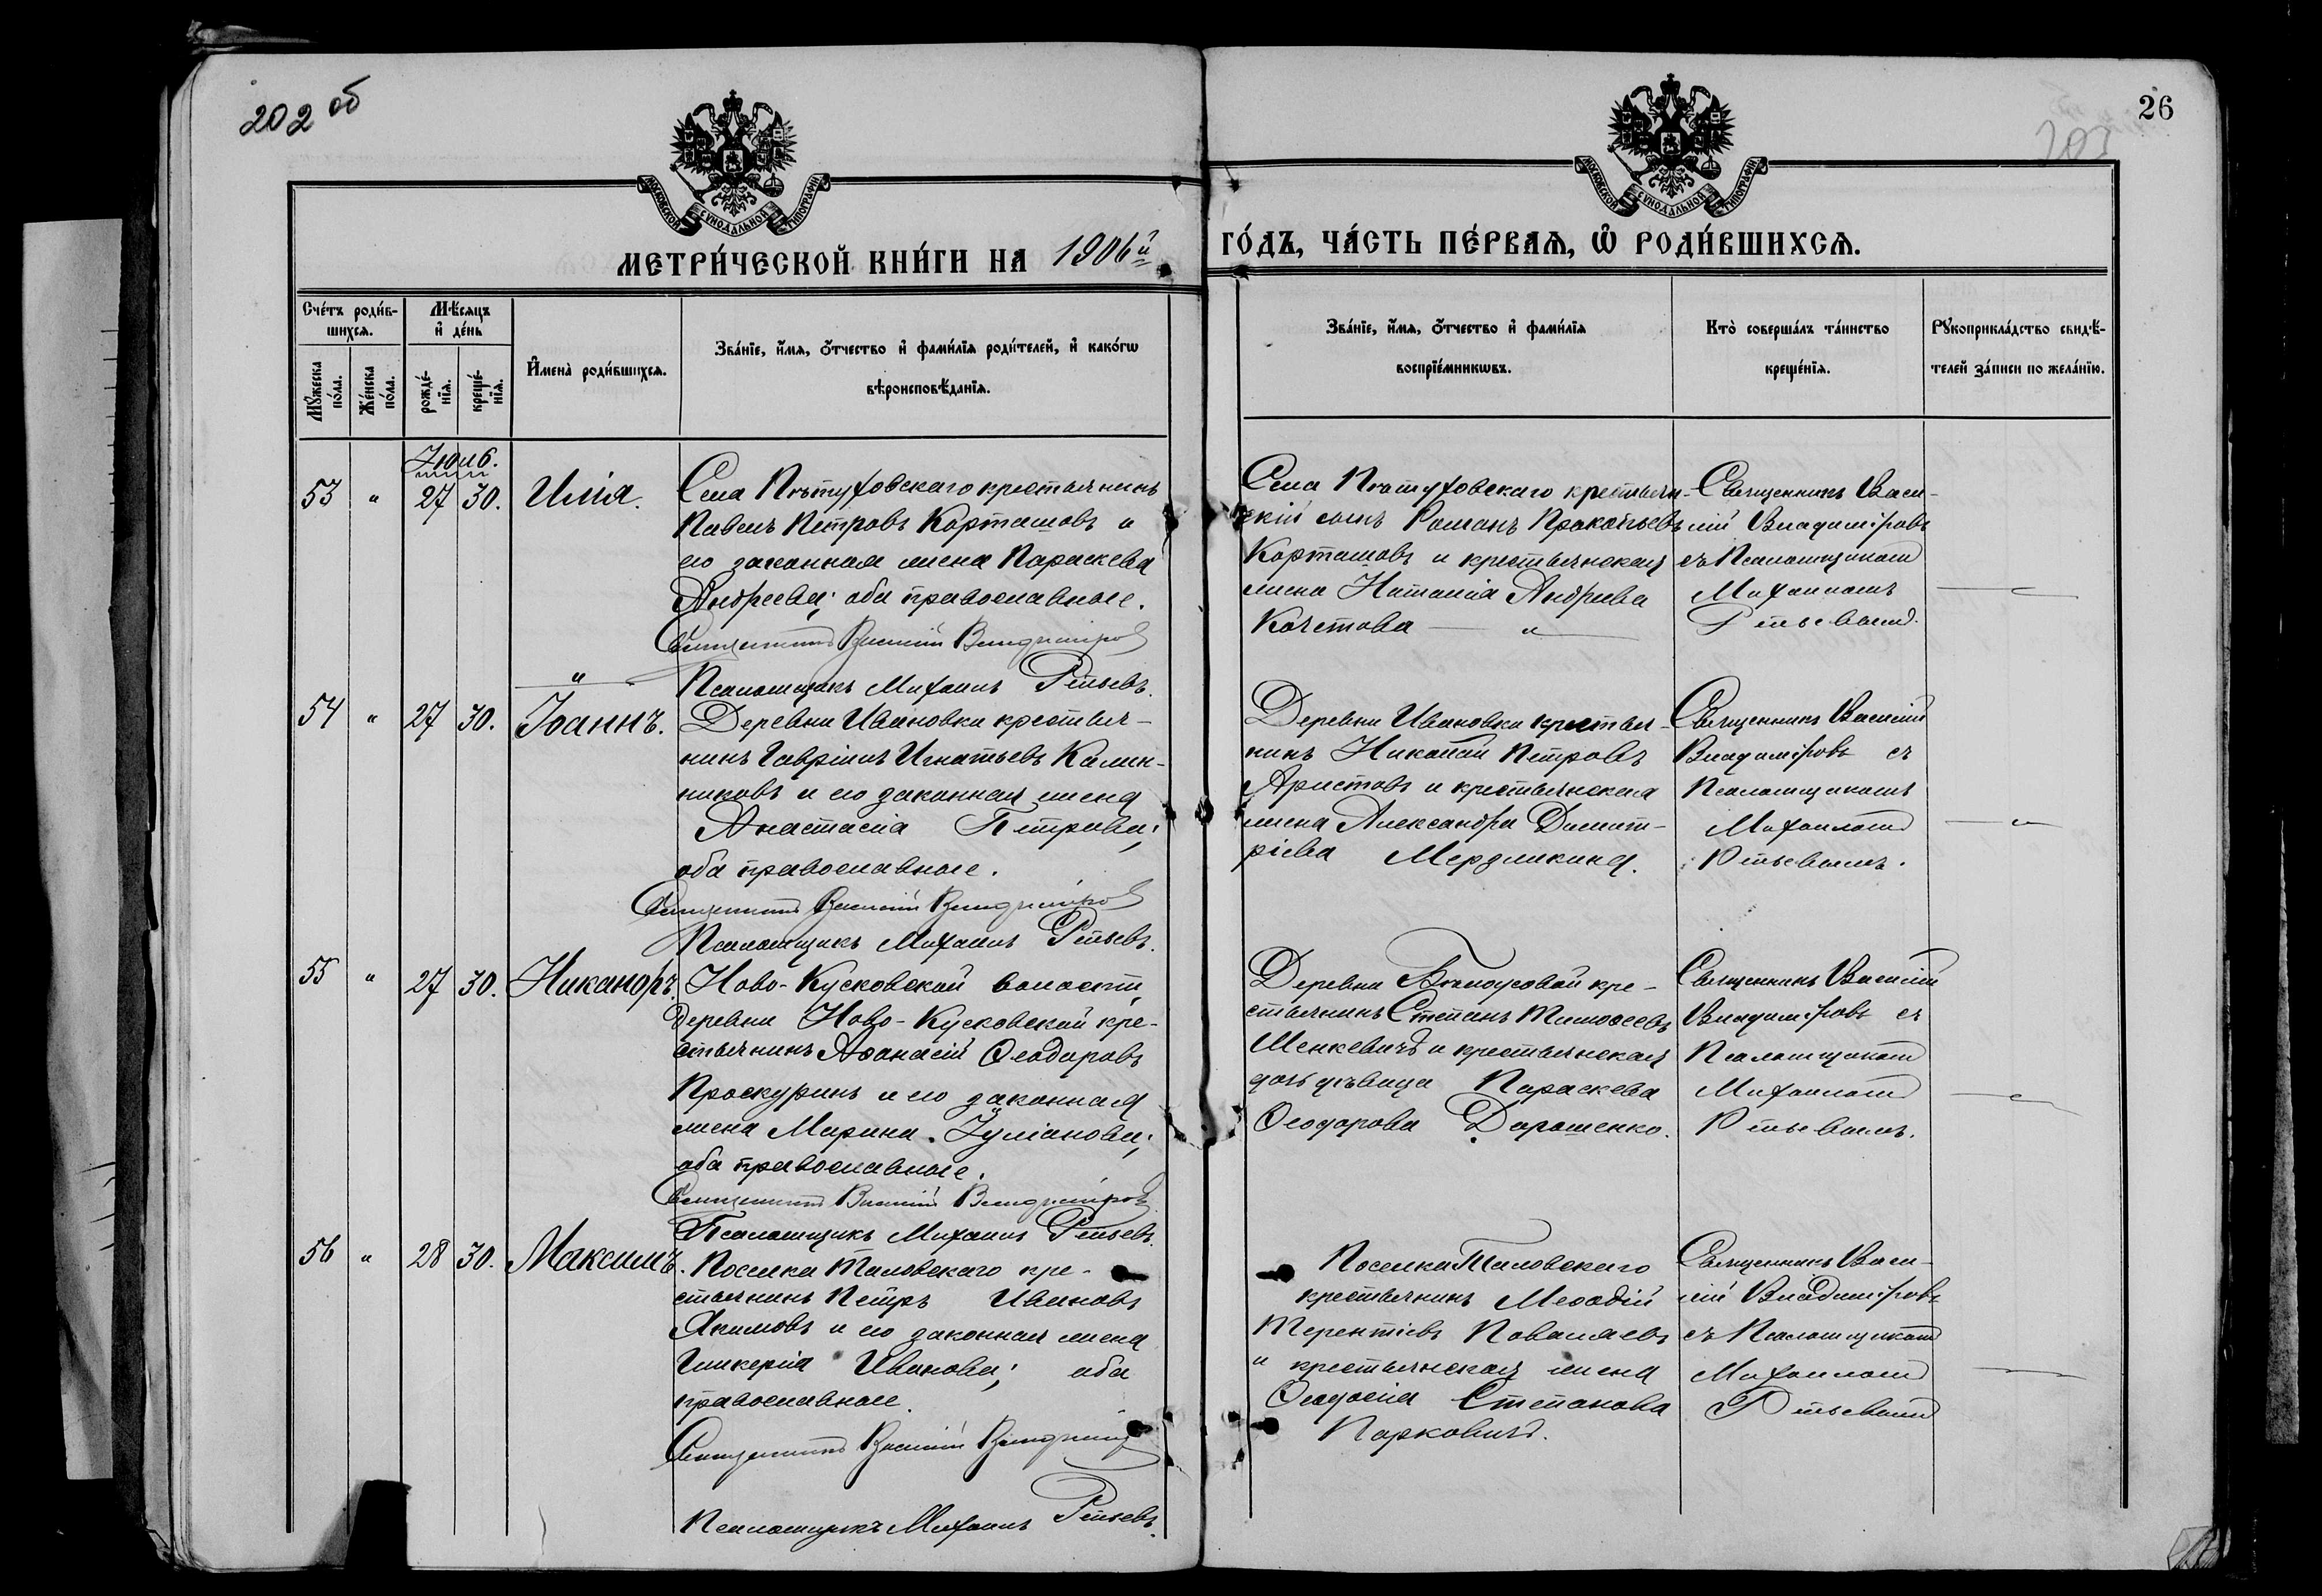 202 об
26
203
МОСКОВСКОЙ СѴНОДАЛЬНОЙ ТИПОГРАФІИ
МОСКОВСКОЙ СѴНОДАЛЬНОЙ ТИПОГРАФІИ
МЕТРИ́ЧЕСКОЙ КНИ́ГИ НА 1906й
ГО́ДЪ, ЧА́СТЬ ПЕ́РВАѦ, Ѿ РОДИ́ВШИХСѦ.
Сче́тъ роди́в-
шихсѧ.
Мѣ́сѧцъ
и҆ де́нь
Мꙋ́жеска
по́ла.
Же́нска
по́ла.
рожде́-
нїѧ.
креще́-
нїѧ.
И҆мена̀ роди́вшихсѧ.
Зва́нїе, и҆́мѧ, ѻ҆́тчество и҆ фами́лїѧ роди́телей, и҆ како́гѡ
вѣроисповѣ́данїѧ.
Зва́нїе, и҆́мѧ, ѻ҆́тчество и҆ фами́лїѧ
воспрїе́мникѡвъ.
Кто̀ соверша́лъ та́инство
креще́нїѧ.
Рꙋкоприкла́дство свидѣ́-
телей за́писи по жела́нїю.
53 " 27 30. Илія.
Села Пѣтуховскаго крестьянинъ
Павелъ Петровъ Карташовъ и
его законная жена Параскева
Андреева; оба православные.
Священникъ Василій Владиміровъ
Псаломщикъ Михаилъ Репьевъ.
Села Пѣтуховскаго крестьян-
скій сынъ Романъ Прокопьевъ
Карташовъ и крестьянская
жена Наталія Андреева
Кочетова "
Священникъ Васи-
лій Владиміровъ
съ Псаломщикомъ
Михаиломъ
Репьевымъ.
54 " 27 30. Іоаннъ.
Деревни Ивановки крестья-
нинъ Гавріилъ Игнатьевъ Калин-
никовъ и его законная жена
Анастасія Петрова;
оба православные.
Священникъ Василій Владиміровъ
Псаломщикъ Михаилъ Репьевъ.
Деревни Ивановки крестья-
нинъ Николай Петровъ
Аристовъ и крестьянская
жена Александра Димит-
ріева Мерзликина.
Священникъ Василій
Владиміровъ съ
Псаломщикомъ
Михаиломъ
Репьевымъ.
55 " 27 30. Никаноръ.
Ново-Кусковской волости,
деревни Ново-Кусковской кре-
стьянинъ Аѳанасій Ѳеодоровъ
Проскуринъ и его законная
жена Марина Іуліанова;
оба православные.
Священникъ Василій Владиміровъ
Псаломщикъ Михаилъ Репьевъ.
Деревни кре-
стьянинъ Степанъ Тимоѳеевъ
Шенкевичъ и крестьянская
дочь дѣвица Параскева
Ѳеодорова Дорошенко.
Священникъ Василій
Владиміровъ съ
Псаломщикомъ
Михаиломъ
Репьевымъ.
56 " 28 30. Максимъ.
Поселка Таловскаго кре-
стьянинъ Петръ Ивановъ
Якимовъ и его законная жена
Гликерія Иванова; оба
православные.
Священникъ Василій Владиміровъ
Псаломщикъ Михаилъ Репьевъ.
Поселка Таловскаго
крестьянинъ Меѳодій
Терентіевъ Поваляевъ
и крестьянская жена
Ѳеодосія Степанова
Парковичъ.
Священникъ Васи-
лій Владиміровъ
съ Псаломщикомъ
Михаиломъ
Репьевымъ